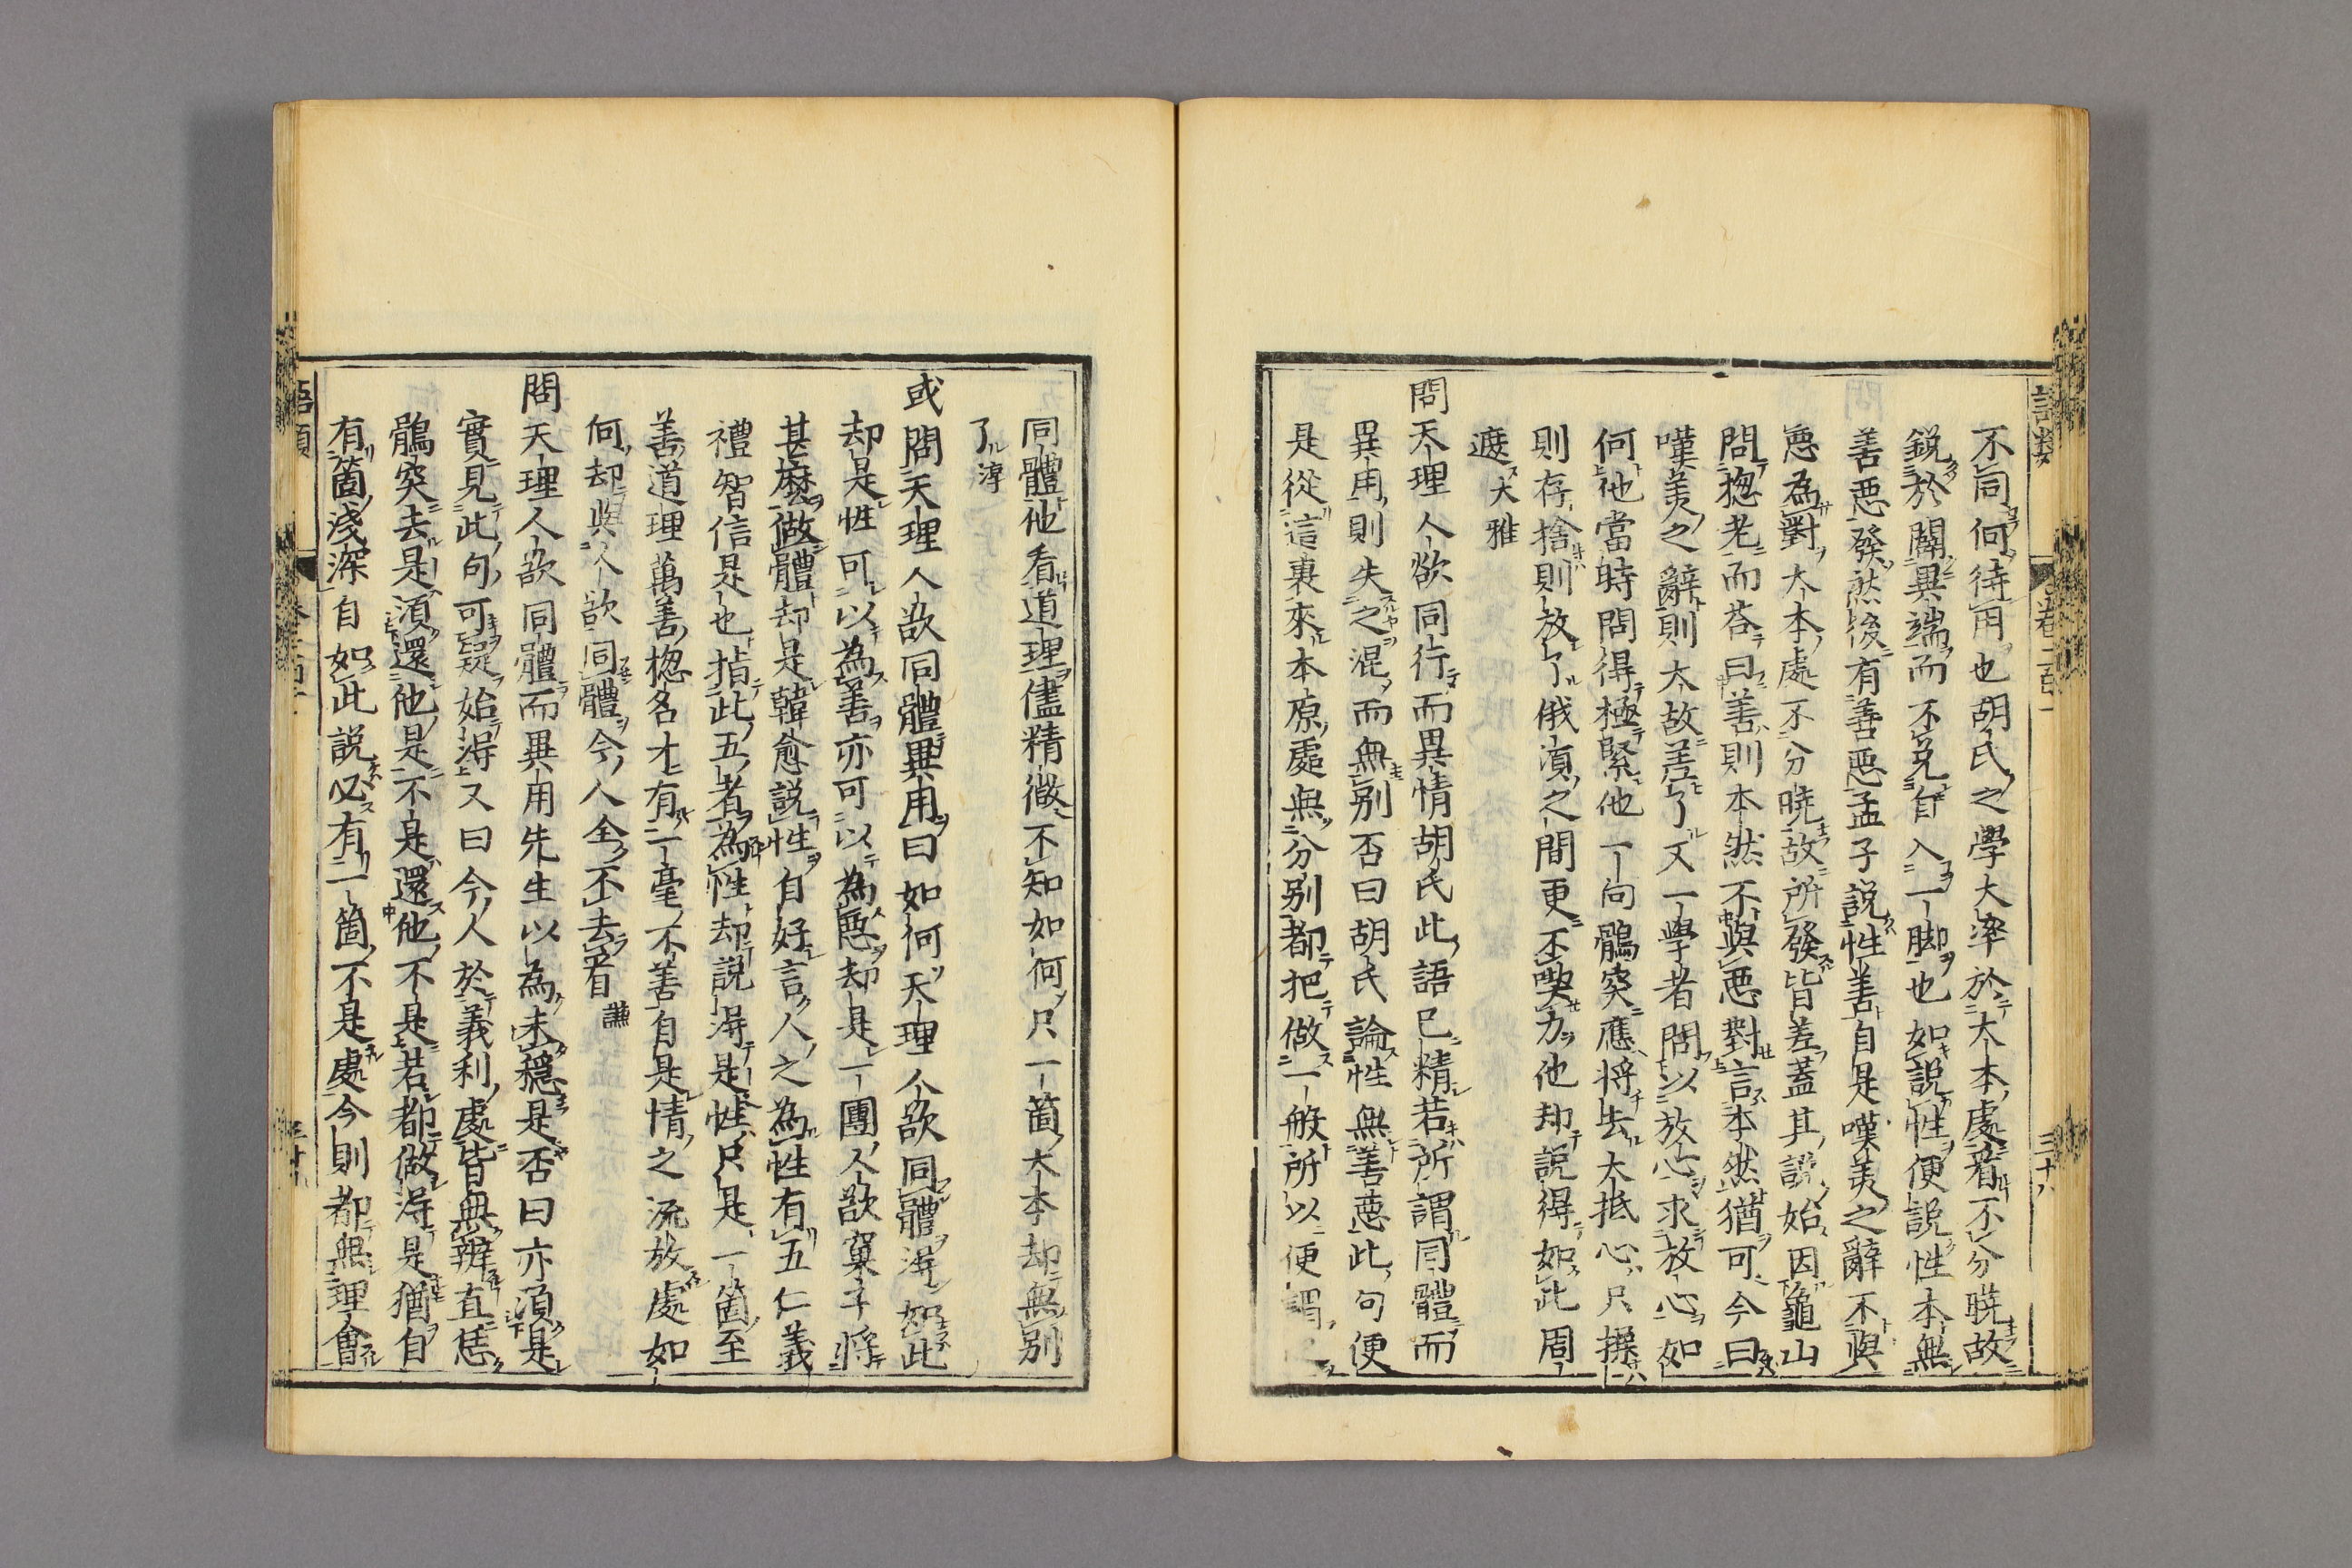 不同何待用也胡氏之學大率於大本處看不分曉故
鋭於闢異端而不免自入一脚也如說性便說性本無
善悪發然後有善悪孟子説性善自是嘆美之辭不與
悪為對大本處不分曉故所發皆差蓋其說始因龜山
問揔老而荅曰善則本然不與悪對言本然猶可今曰
嘆美之辭則大故差了又一學者問以放心求放心如
何他當時問得極緊他一向鶻突應將去大抵心只操
則存捨則放了俄湏之間更不喫力他却説得如此周
遮大雅
問天理人欲同行而異情胡氏此語已精若所謂同體而
異用則失之混而無别否曰胡氏論性無善悪此句便
是從這裏來本原處無分别都把做一般所以便謂
同體他看道理儘精微不知如何只一箇大本却無别
了淳
或問天理人欲同體異用曰如何天理人欲同體得如此
却是性可以為善亦可以為悪却是一團人欲窠子將
甚麼做體却是韓愈説性自好言人之為性有五仁義
禮智信是也指此五者為性却説得是性只是一箇至
善道理萬善揔名才有一毫不善自是情之流放處如
何却與人欲同體今人全不去看謙
問天理人欲同體而異用先生以為未穏是否曰亦湏是
實見此句可疑始得又曰今人於義利處皆無辨直恁
鶻突去是湏還他是不是還他不是若都做得是猶自
有箇淺深自如此説必有一箇不是處今則都無理會